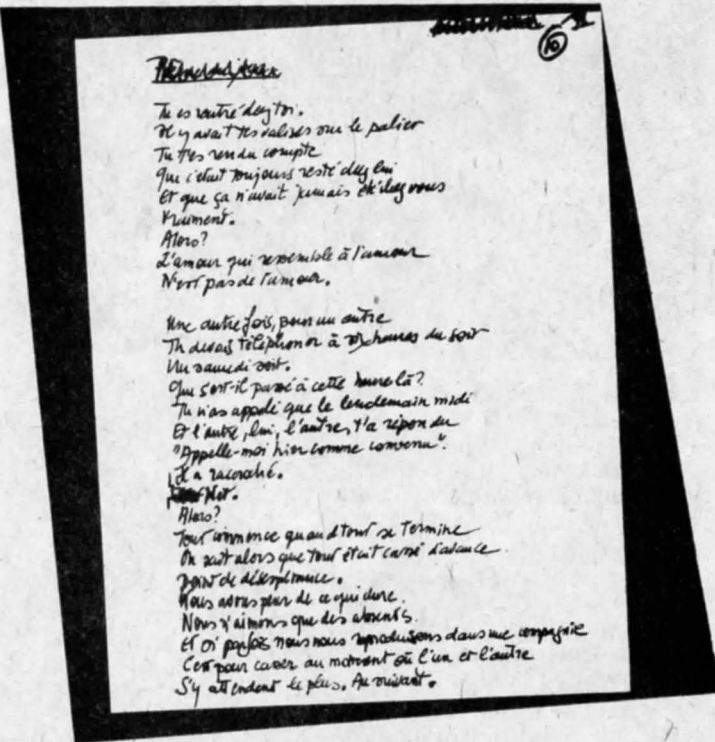 10
Tu es rentré chez toi.
Il y avait tes valises sur le palier
Tu t'es rendu compte
Que c'était toujours resté chez lui
Et que ça n'avait jamais été chez vous
Vraiment.
Alors?
L'amour qui ressemble à l'amour
N'est pas de l'amour.
Une autre fois, pour un autre
Tu devais téléphoner à heures du soir
Un samedi soir.
Que s'est-il passé à cette heure là?
Tu n'as appelé que le lendemain midi
Et l'autre, lui, l'autre, t'a répondu
"Appelle-moi hier comme convenu".
Il a raccroché.
Net.
Alors?
Tout commence quand tout se termine
On sait alors que tout était cassé d'avance
point de désespérance.
Nous avons peur de ce qui dure.
Nous n'aimons que des absents.
Et si parfois nous nous introduisons dans une compagnie
C'est pour casser au moment où l'un et l'autre
S'y attendent le plus. Au suivant.